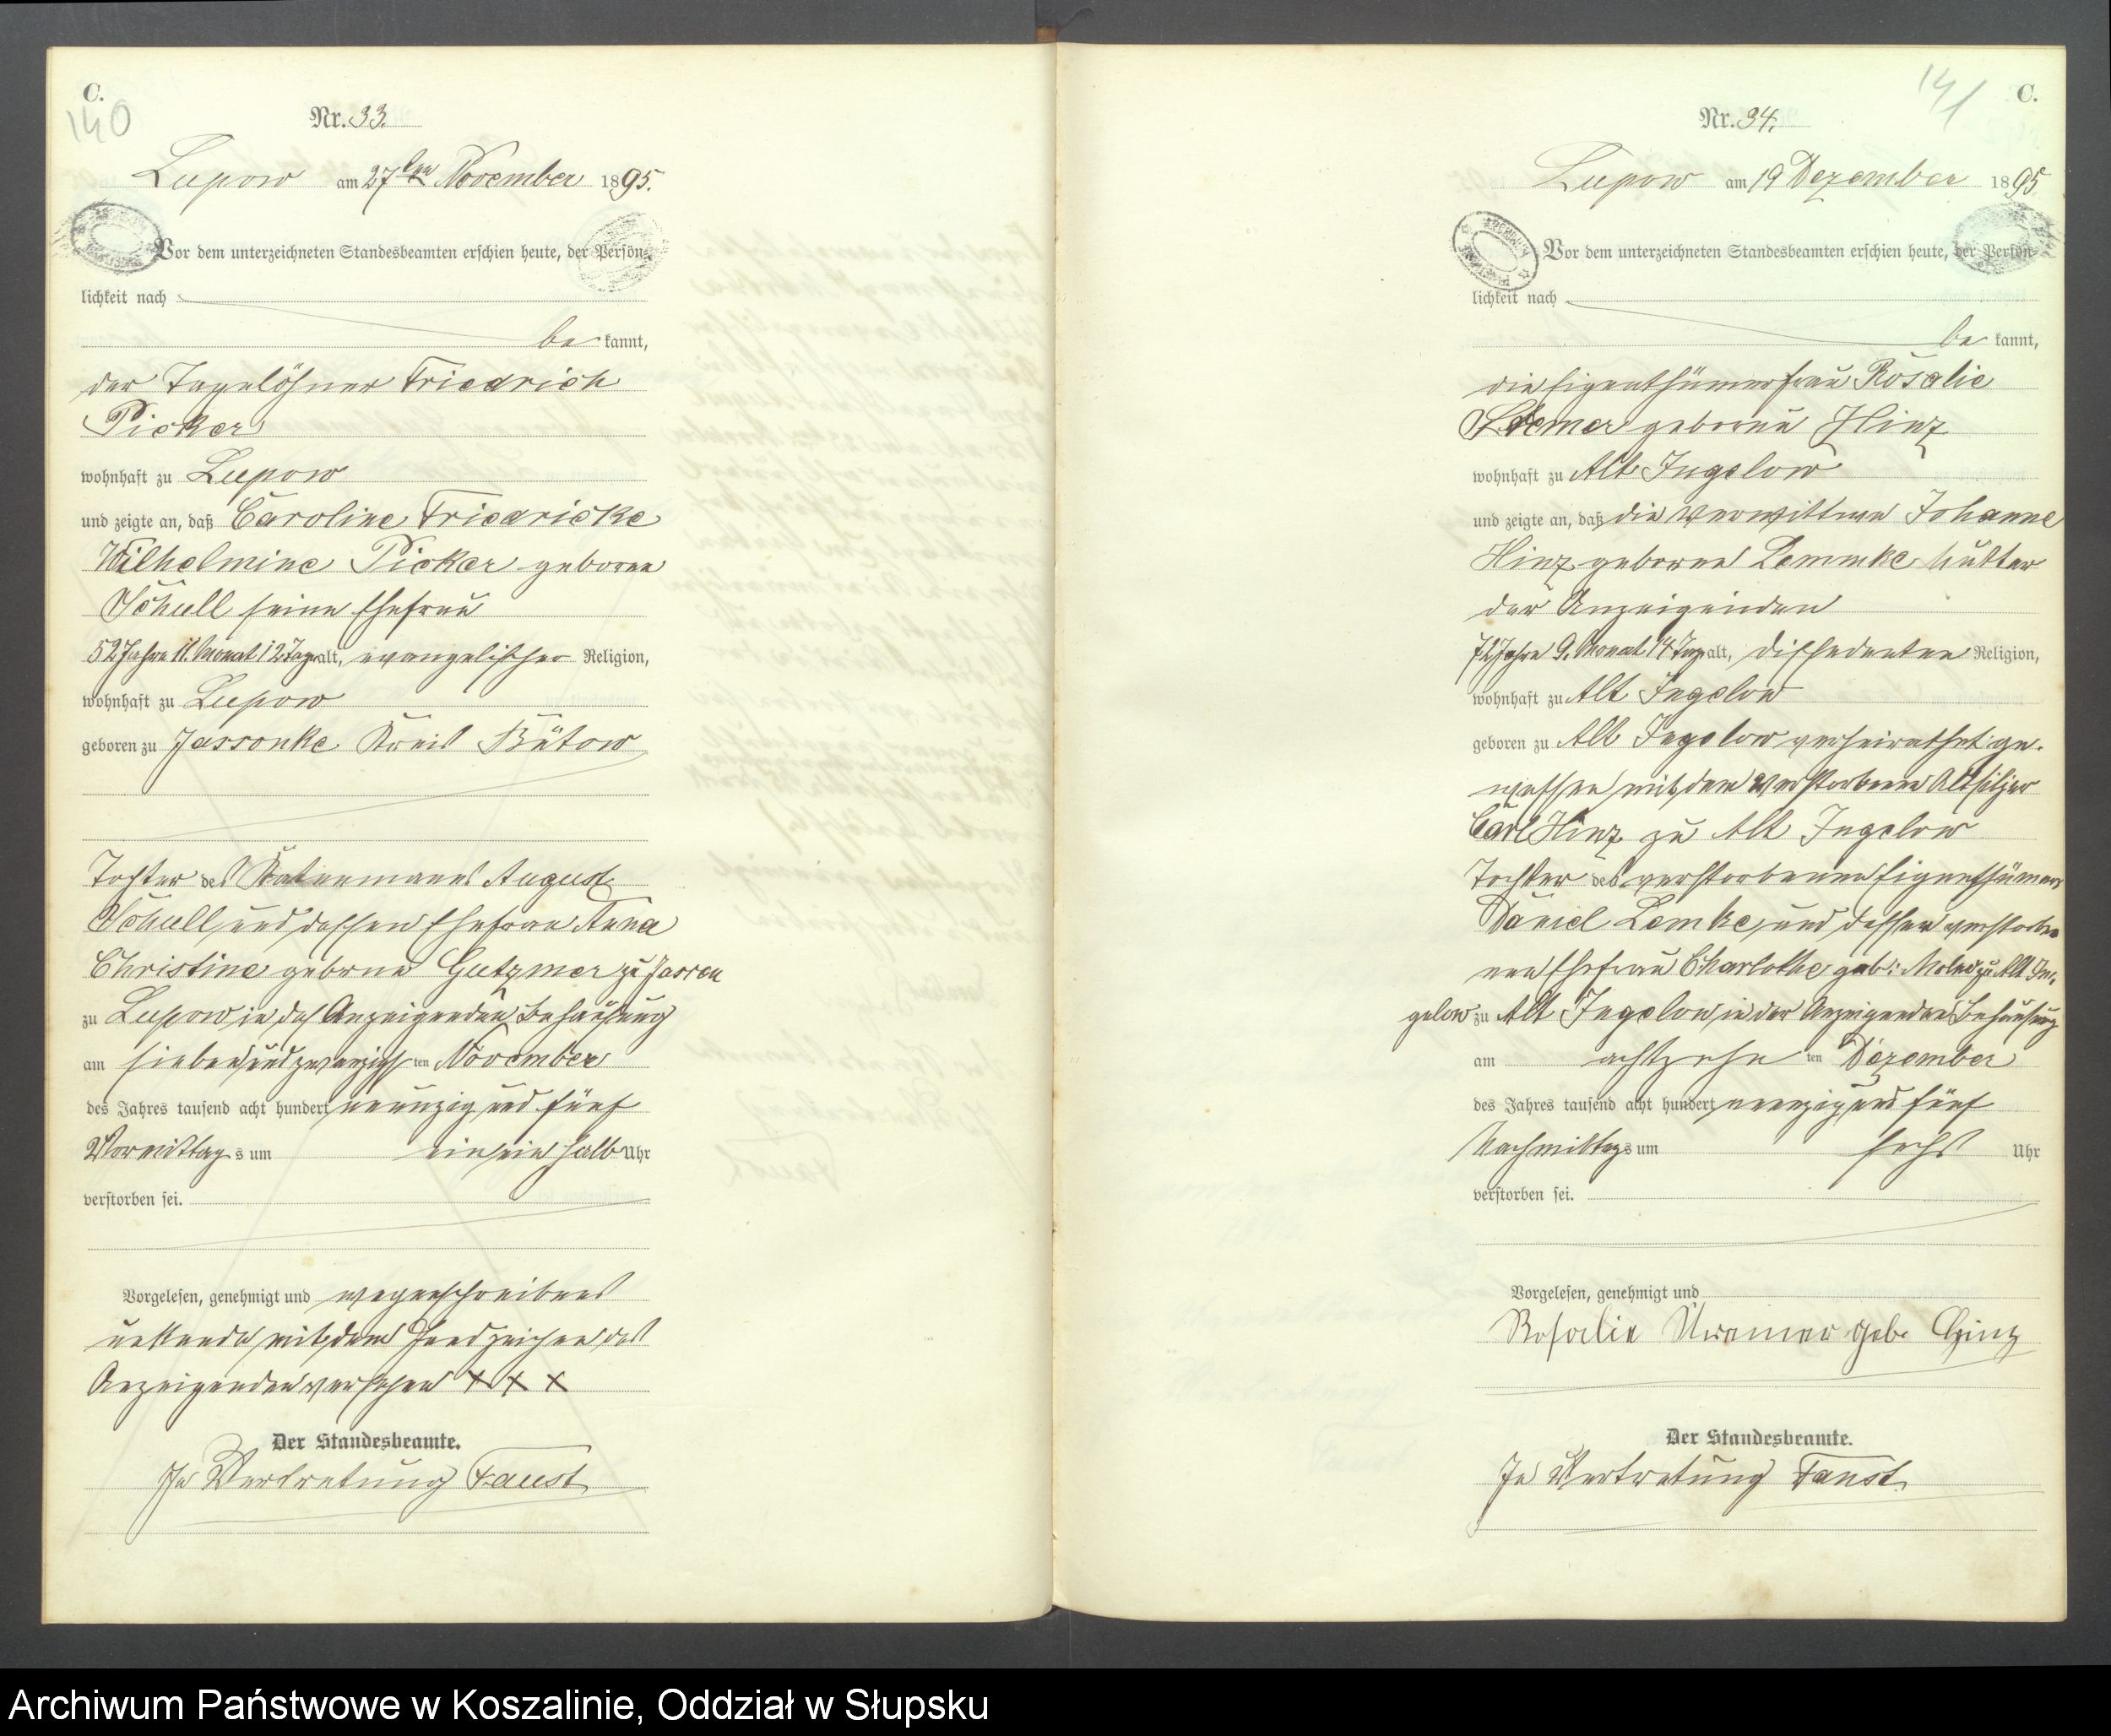 C.
140
Nr. 33.
Lupow am 27ten November 1895.
Vor dem unterzeichneten Standesbeamten erschien heute, der Persön-
lichkeit nach
be kannt,
der Tagelöhner Friedrich
Picker
wohnhaft zu Lupow
und zeigte an, daß Caroline Friedricke
Wilhelmine Picker geborne
Schull seine Ehefrau
52 Jahre 11. Monat 12 Tage alt, evangelischer Religion,
wohnhaft zu Lupow
geboren zu Jassonke Kreis Bütow
Tochter des Katenmanns August
Schull und dessen Ehefrau Anna
Christine geborne Gutzmer zu Jassen
zu Lupow in des Anzeigenden Behausung
am siebenundzwanzigsten November
des Jahres tausend acht hundert neunzig und fünf
Vormittags um ein ein halb Uhr
verstorben sei.
Vorgelesen, genehmigt und wegen Schreibens
unkunde mit dem Handzeichen des
Anzeigenden versehen + + +
Der Standesbeamte.
In Vertretung Faust
141
C.
Nr. 34.
Lupow am 19 Dezember 1895
Vor dem unterzeichneten Standesbeamten erschien heute, der Persön-
lichkeit nach
be kannt,
die Eigenthümerfrau Rosalie
geborne Hinz
wohnhaft zu Alt Jugelow
und zeigte an, daß die verwittwe Johanne
Hinz geborne Lemmke Mutter
der Anzeigenden
72 Jahre 9. Monat 14 Tage alt, Religion,
wohnhaft zu Alt Jugelow
geboren zu Alt Jugelow verheirathet ge-
wessen mit dem verstorbenen Altsitzer
Carl Hinz zu Alt Jugelow
Tochter des verstorbenen Eigenthümers
Daniel Lemke und dessen verstorbe
nen Ehefrau Charlothe geb: zu Alt Ju-
gelow zu Alt Jugelow in der Anzeigenden Behausung
am achtzehn ten Dezember
des Jahres tausend acht hundert neunzig und fünf
Nachmittags um sechs Uhr
verstorben sei.
Vorgelesen, genehmigt und
Rosalie geb. Hinz
Der Standesbeamte.
In Vertretung Faust
Archiwum Państwowe w Koszalinie, Oddział w Słupsku